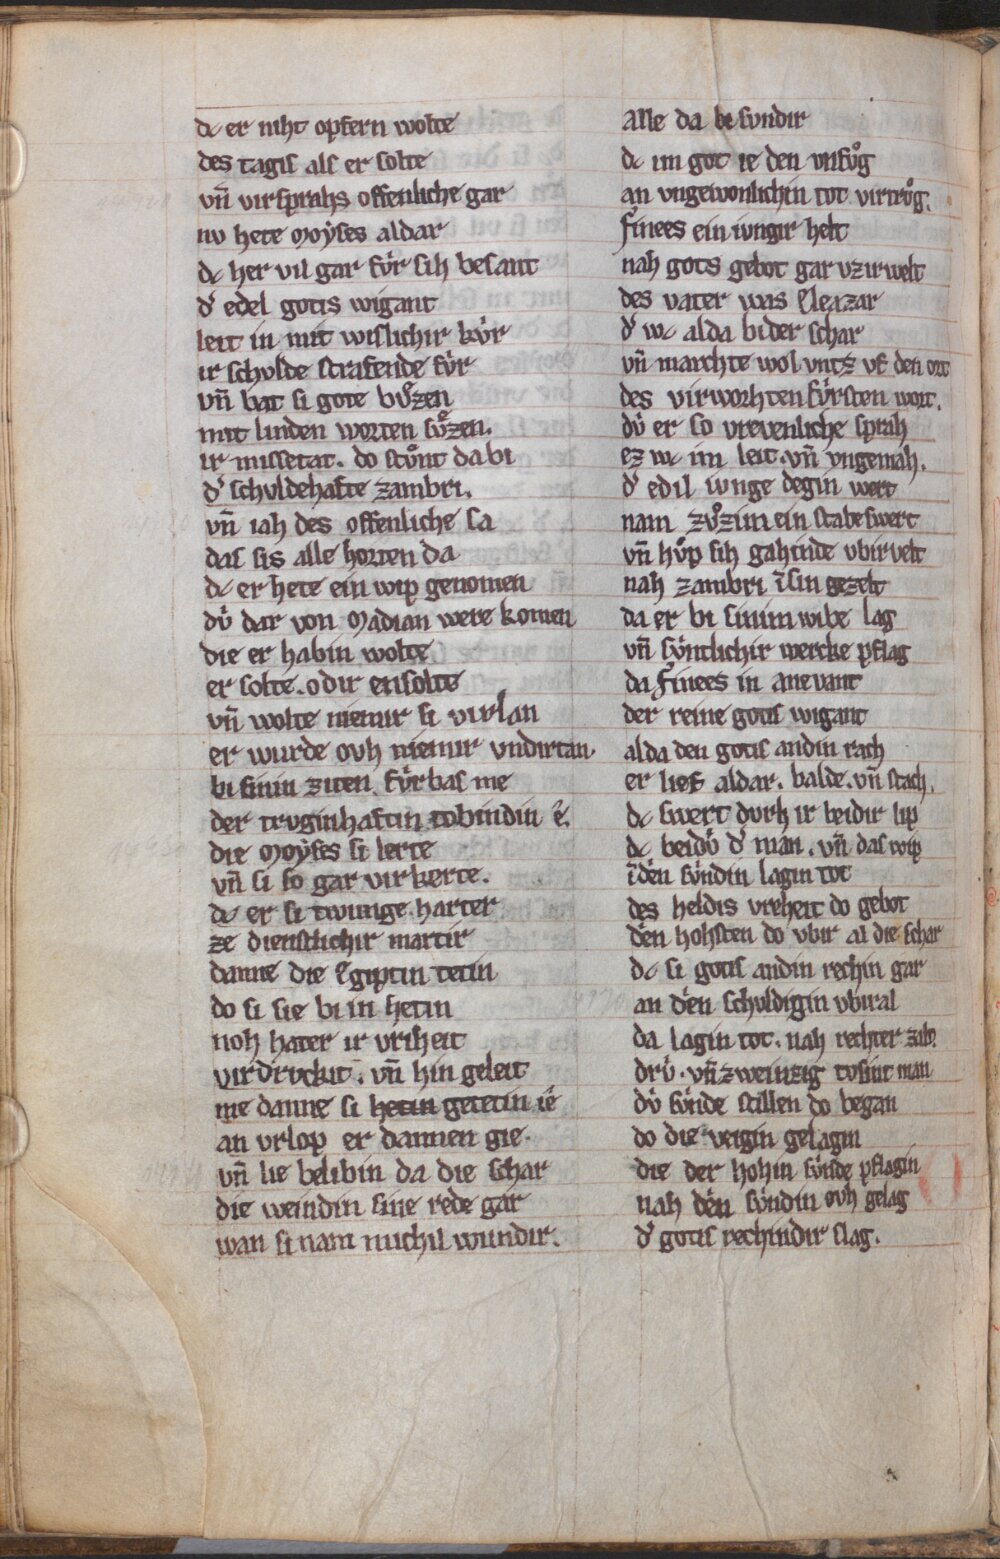 dc er niht opfern wolte
des tagis als er solte
vn̄ virsprahs offenliche gar
nv hete Moẏses aldar
dc her vil gar fv́r sih besant
dˀ edel gotis wigant
leit in mit wislichir kv́r
ir schvlde strafende fv́r
vn̄ bat si gote bvͦzen
mit linden worten svͦzen.
ir missetat. do stvͦnt da bi
dˀ schvldehafte zambri.
vn̄ iah des offenliche sa
das sis alle horten da
dc er hete ein wip genomen
dv́ dar von Madian were komen
die er habin wolte
er solte. odir ensolte
vn̄ wolte niemir si virlan
er wurde ovh niemir vndirtan
bi sinin ziten fv́rbas me
der trvginhaftin tobindin e.
die Moẏses si lerte
vn̄ si so gar virkerte.
dc er si twunge harter
ze dienstlichir martir
danne die Egiptin tetin
do si sie bi in hetin
noh hater ir vriheit
virdrvckit. vn̄ hin geleit
me danne si hetin getetin ie
an vrlop er dannen gie.
vn̄ lie belibin da die schar
die weindin sine rede gar
wan si nam michil wundir.
alle da besvndir
dc im got ie den vnfvͦg
an vngewonlichin tot virtrvͦg.
finees ein ivngir helt
nah gots gebot gar vzirwelt
des vater was Eleazar
dˀ wc alda bider schar
vn̄ marchte wol vntz vf den ort
des virworhten fv́rsten wort.
dv́ er so vrevenliche sprah
ez wc im leit. vn̄ vngemah.
dˀ edil ivnge degin wert
nam zvͦzim ein stabeswert
vn̄ hvͦp sih gahinde vbir velt
nah zambri ī sin gezelt
da er bi sinim wibe lag
vn̄ sv́ntlichir wercke pflag
da Finees in anevant
der reine gotis wigant
alda den gotis andin rach
er lief aldar. balde. vn̄ stach.
dc swert dvrh ir beidir lip
dc beidv́ dˀ man. vn̄ das wip
ī den sv́ndin lagin tot
des heldis vreheit do gebot
den hohsten do vbir al die schar
dc si gotis andin rechin gar
an den schvldigin vbiral
da lagin tot. nah rechter zal.
drv́. vn̄ zweinzig tvsint man
dv́ sv́nde stillen do began
do die veigin gelagin
die der hohin sv́nde pflagin
nah den sv́ndin ovh gelag
dˀ gotis rechindir slag.